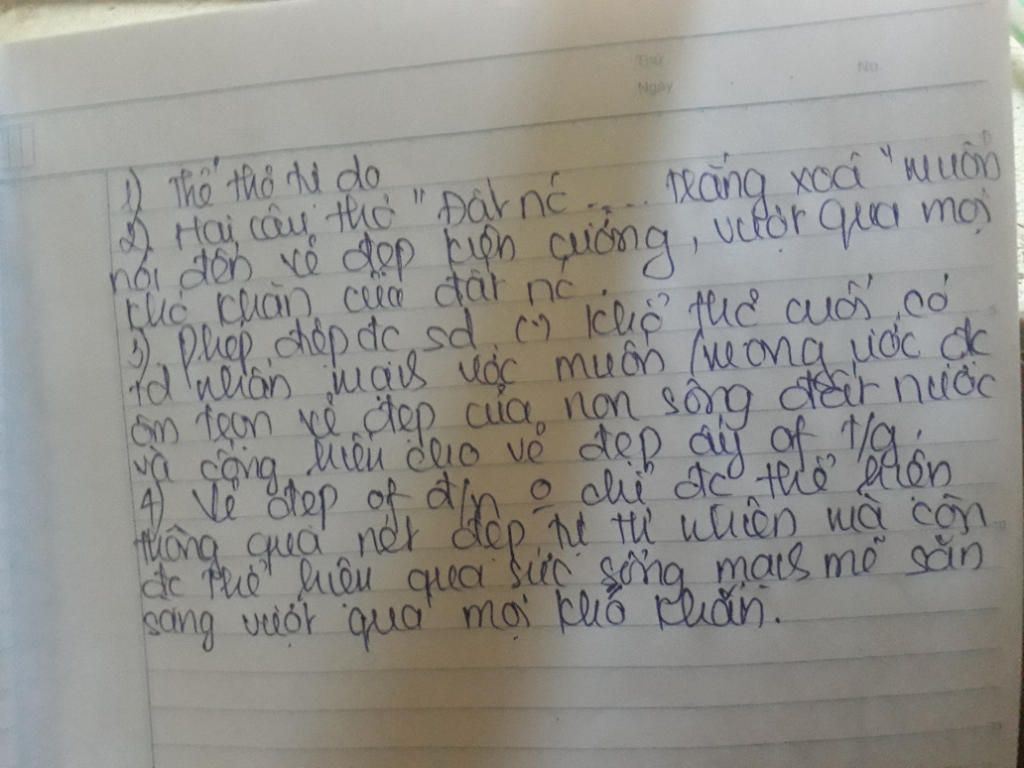 Thứ
Ngày
No.
1) Thể thơ tự do
2) Hai câu thơ "Đất nc .... trắng xoá" muốn
nói đến vẻ đẹp kiên cường, vượt qua mọi
khó khăn của đất nc.
3) Phép điệp đc sd (.) khổ thơ cuối có
td nhấn mạnh ước muốn / mong ước đc
ôm trọn vẻ đẹp của non sông đất nước
và cống hiến cho vẻ đẹp ấy of t/g.
4) Vẻ đẹp of đ/n o chỉ đc thể hiện
thông qua nét đẹp từ tự nhiên mà còn
đc thể hiện qua sức sống mạnh mẽ sẵn
sàng vượt qua mọi khó khăn.